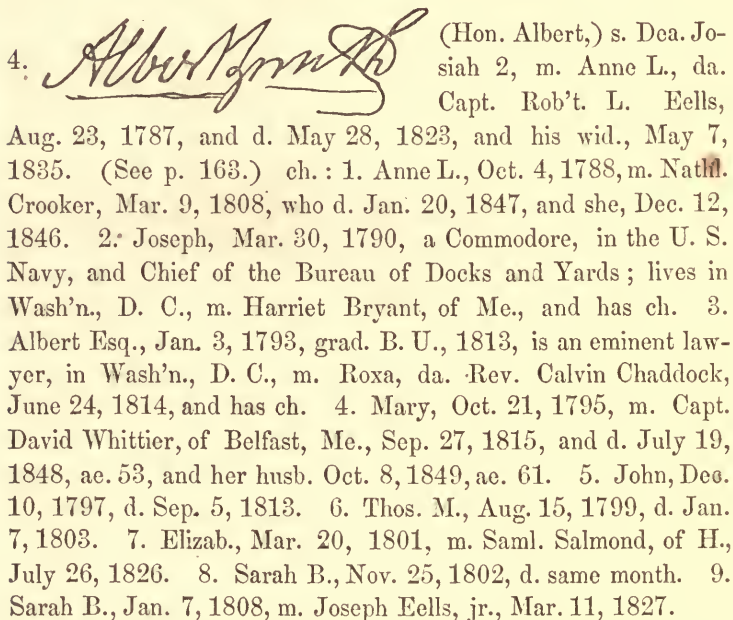 4. Albert Smith (Hon. Albert,) s. Dea. Jo-
siah 2, m. Anne L., da.
Capt. Rob't. L. Eells,
Aug. 23, 1787, and d. May 28, 1823, and his wid., May 7,
1835. (See p. 163.) ch.: 1. Anne L., Oct. 4, 1788, m. Nathl.
Crooker, Mar. 9, 1808, who d. Jan. 20, 1847, and she, Dec. 12,
1846. 2. Joseph, Mar. 30, 1790, a Commodore, in the U. S.
Navy, and Chief of the Bureau of Docks and Yards; lives in
Wash'n., D. C., m. Harriet Bryant, of Me., and has ch. 3.
Albert Esq., Jan. 3, 1793, grad. B. U., 1813, is an eminent law-
yer, in Wash'n., D. C., m. Roxa, da. Rev. Calvin Chaddock,
June 24, 1814, and has ch. 4. Mary, Oct. 21, 1795, m. Capt.
David Whittier, of Belfast, Me., Sep. 27, 1815, and d. July 19,
1848, ae. 53, and her husb. Oct. 8, 1849, ae. 61. 5. John, Dec.
10, 1797, d. Sep. 5, 1813. 6. Thos. M., Aug. 15, 1799, d. Jan.
7, 1803. 7. Elizab., Mar. 20, 1801, m. Saml. Salmond, of H.,
July 26, 1826. 8. Sarah B., Nov. 25, 1802, d. same month. 9.
Sarah B., Jan. 7, 1808, m. Joseph Eells, jr., Mar. 11, 1827.